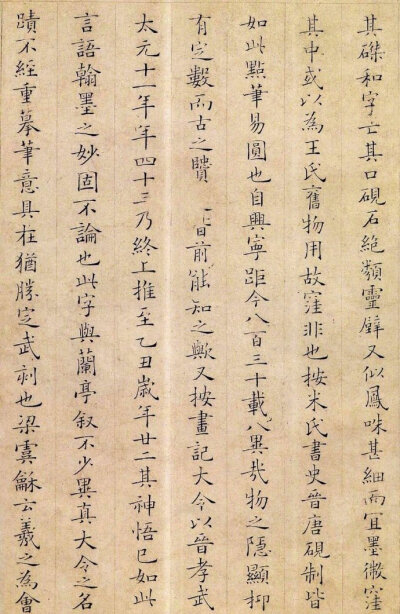 其磔和字亡其口硯石絶類靈壁又似鳳咮甚細而冝墨微窪
其中或以為王氏舊物用故窪非也按米氏書史晉唐硯制皆
如此點筆易圓也自興寧距今八百三十載八異㢤物之隱顯抑
有定數而古之賾日前能知之歟又按畫記大令以晉孝武
太元十一年年四十三乃終上推至乙丑歲年廿二其神悟已如此
言語翰墨之妙固不論也此字與蘭亭叙不少異真大令之名
蹟不經重摹筆意具在猶勝定武刻也梁虞龢云羲之為會